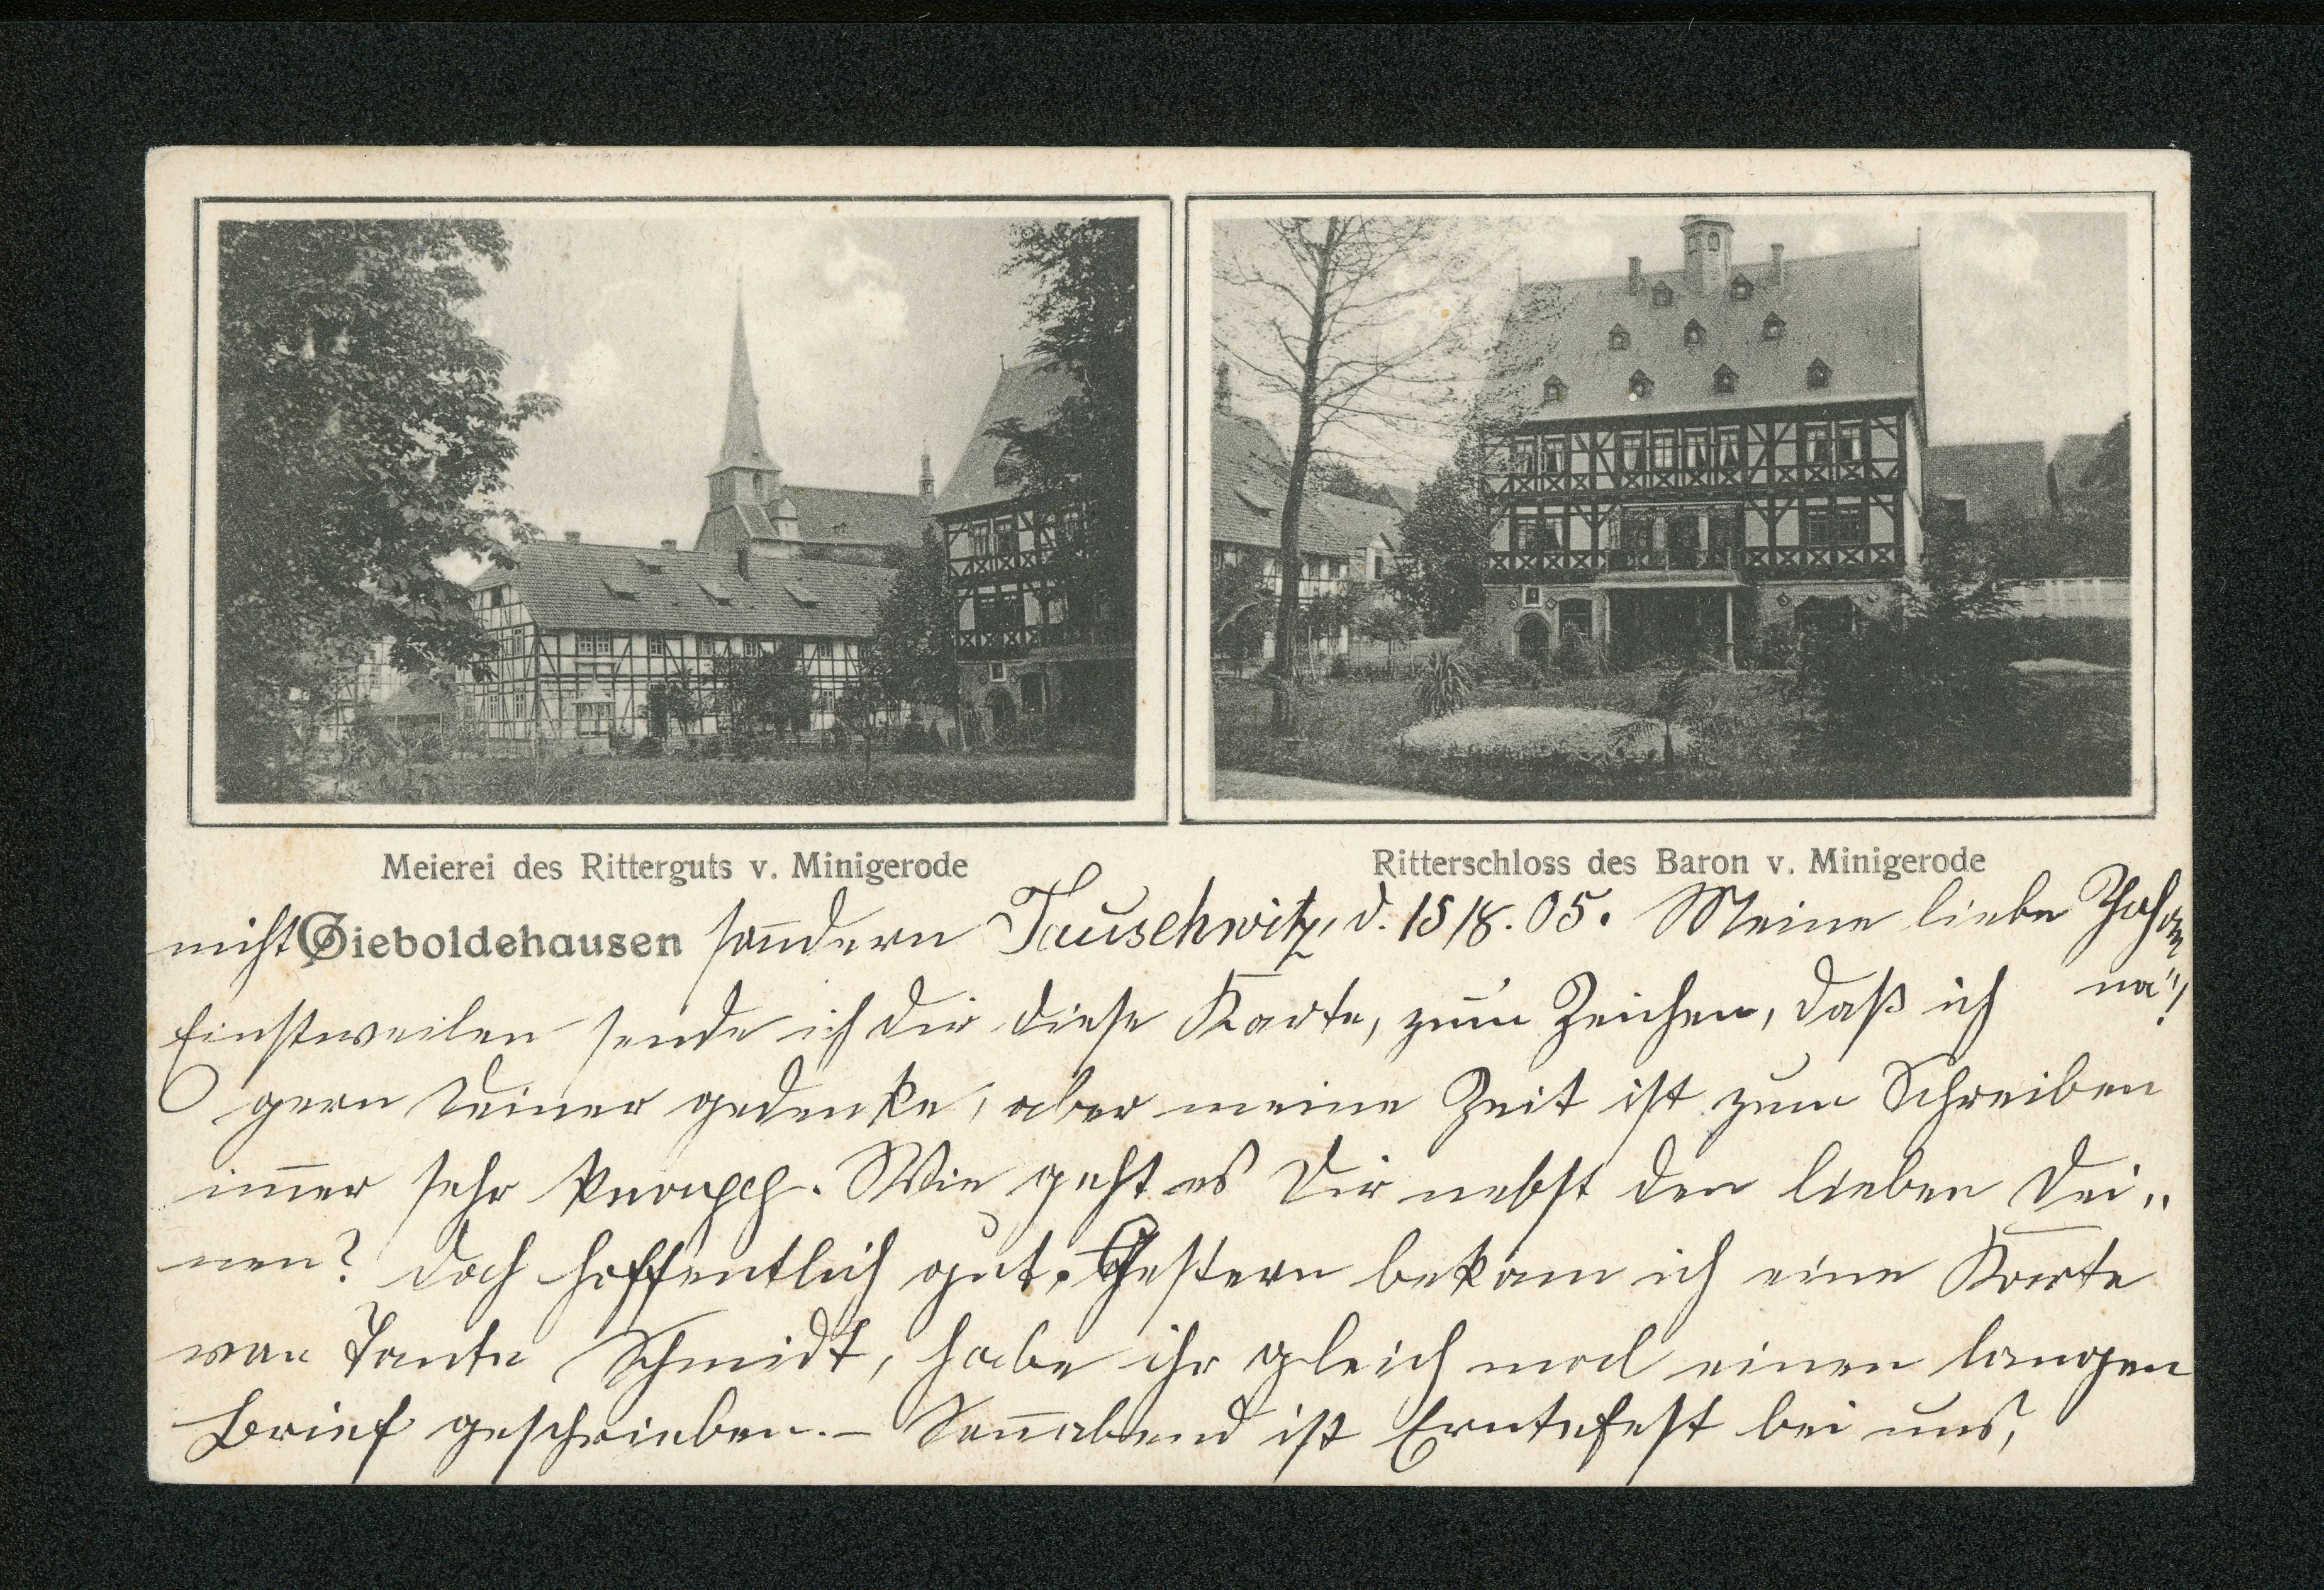 Meierei des Ritterguts v. Minigerode
Ritterschloss des Baron v. Minigerode
nicht Gieboldehausen sondern Tauschwitz, d. 15/8. 05. Meine liebe Johan
na!
Einstweilen sende ich Dir diese Karte, zum Zeichen, daß ich
gern Deiner gedenke, aber meine Zeit ist zum Schreiben
im̅er sehr knapp. Wie geht es Dir nebst den lieben Dei„
nen? Doch hoffentlich gut. Gestern bekam ich eine Karte
von Tante Schmidt, habe ihr gleich mal einen langen
Brief geschrieben. – Son̅abend ist Erntefest bei uns,